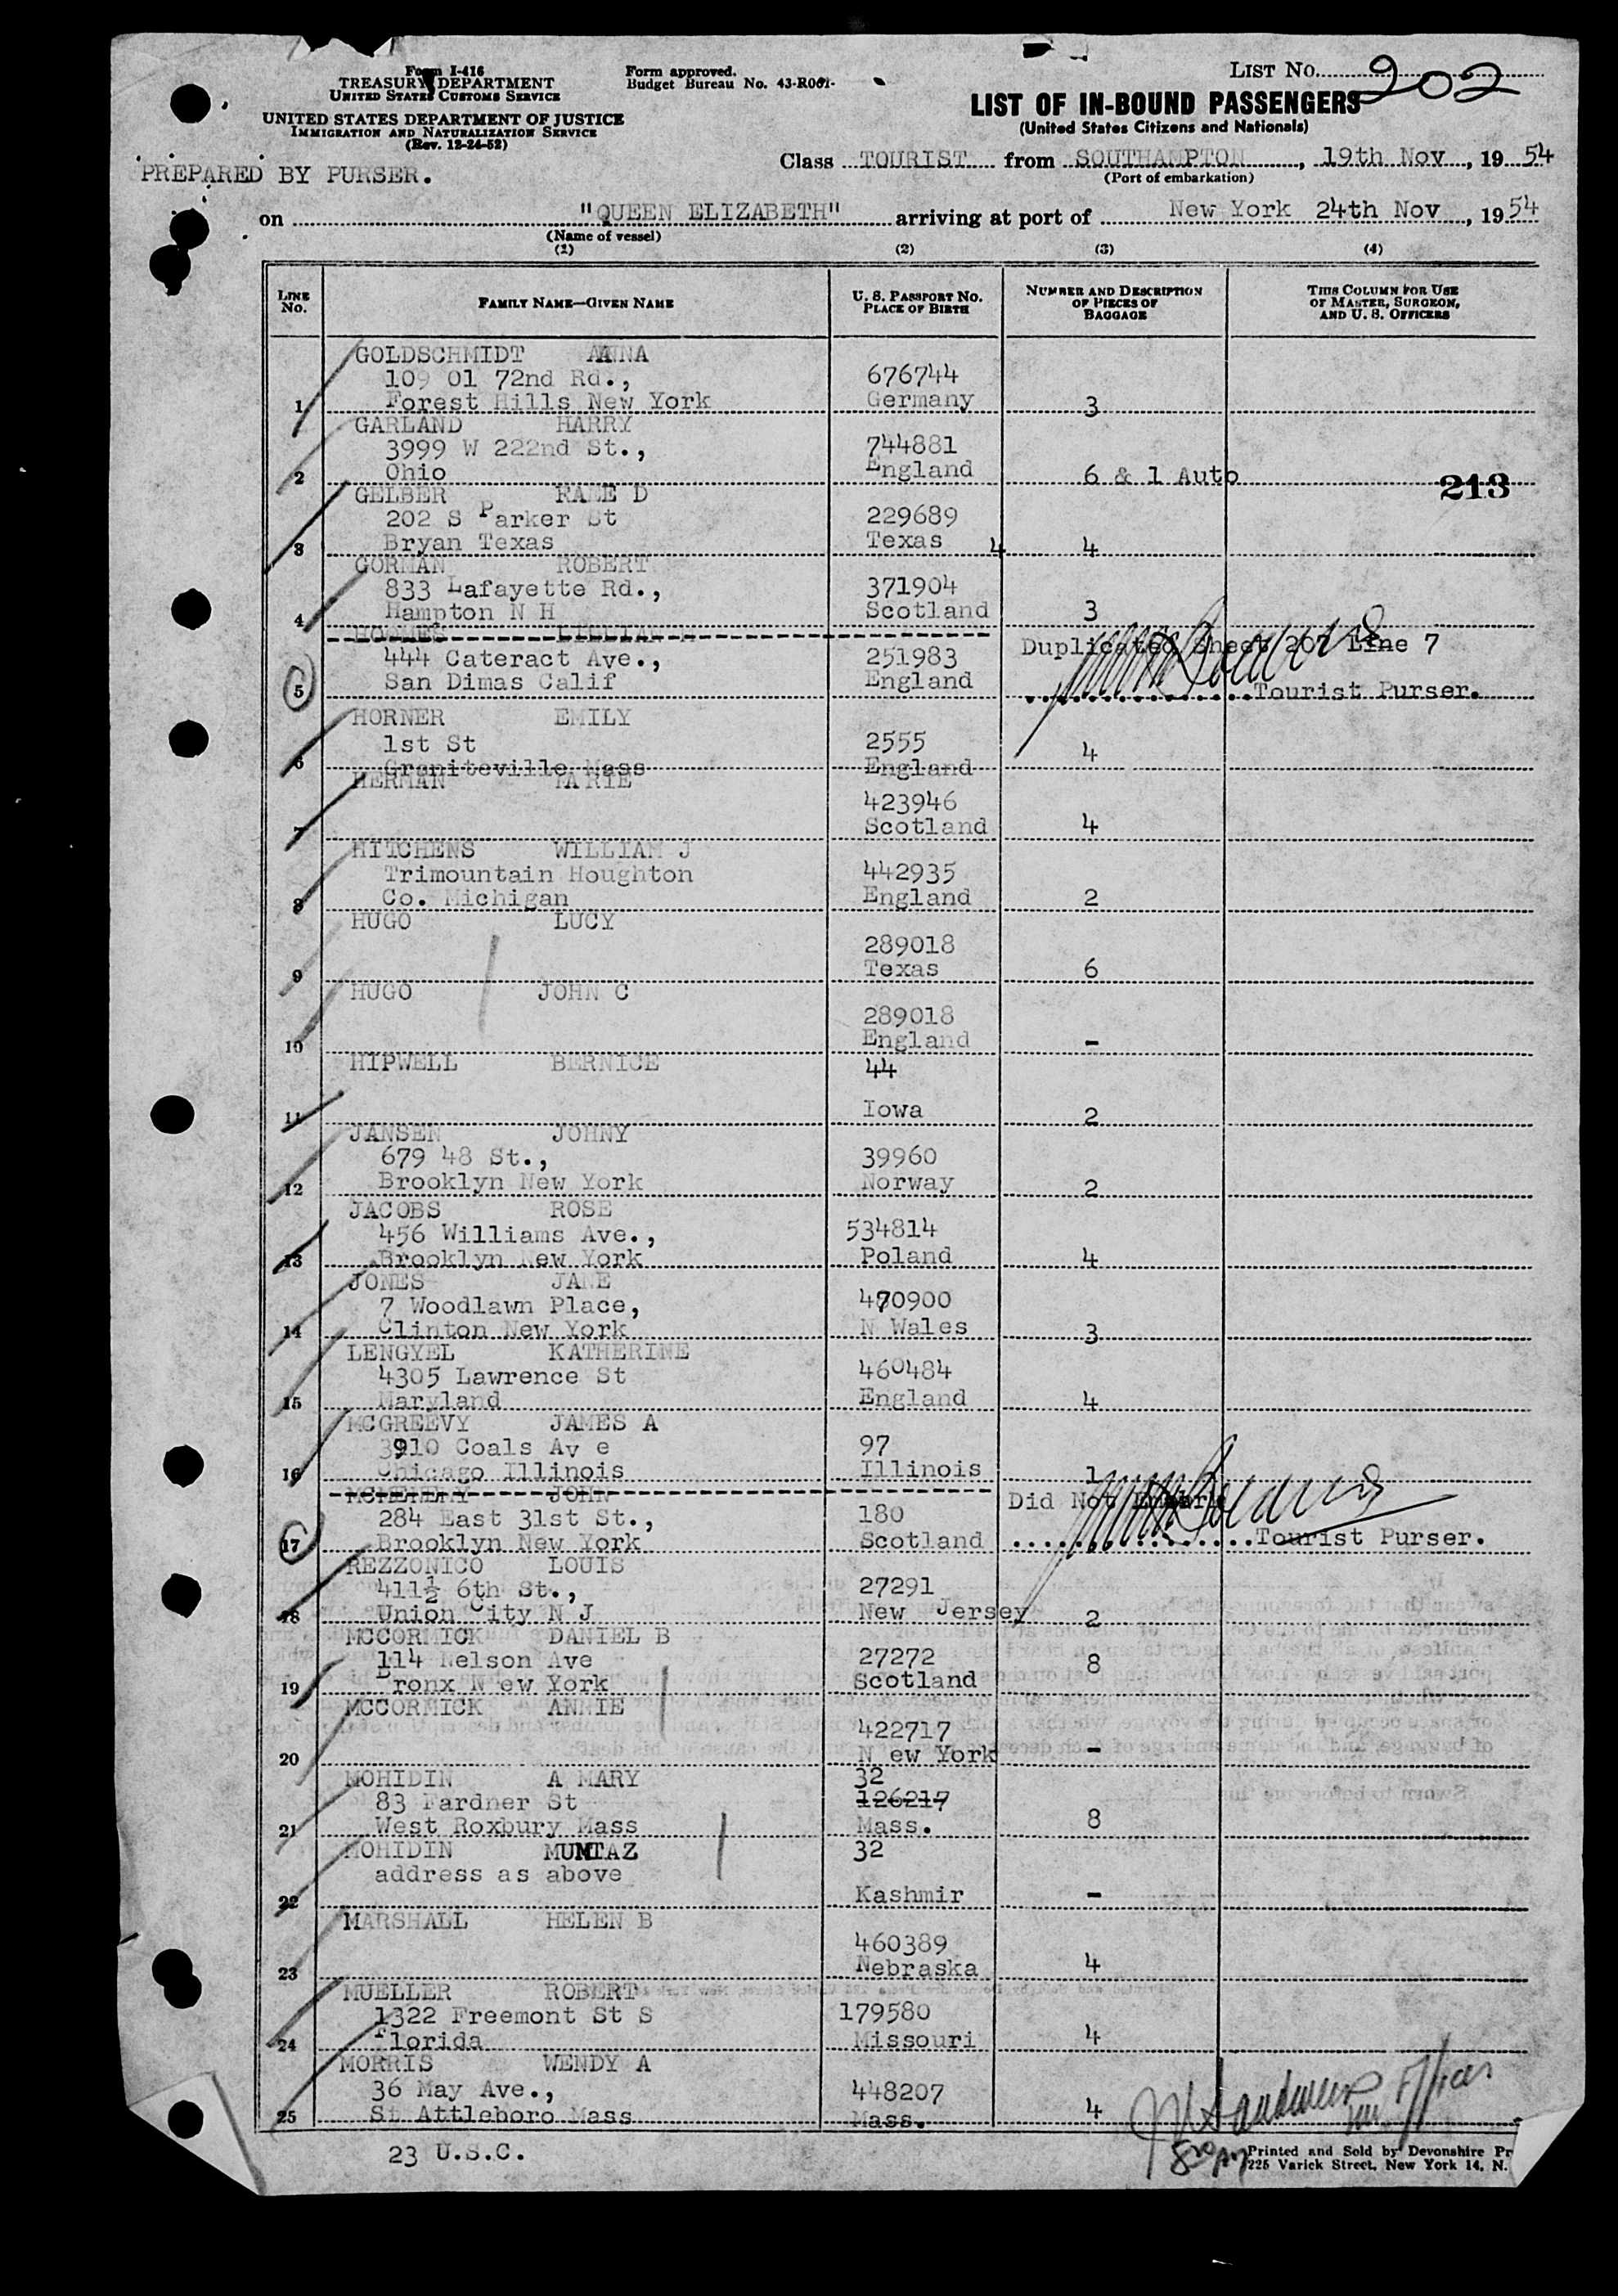 Form I-416
TREASURY DEPARTMENT
UNITED STATES CUSTOMS SERVICE
UNITED STATES DEPARTMENT OF JUSTICE
IMMIGRATION AND NATURALIZATION SERVICE
(Rev. 12-24-52)
Form approved.
Budget Bureau No. 43-R061-
LIST NO. 202
LIST OF IN-BOUND PASSENGERS
(United States Citizens and Nationals)
PREPARED BY PURSER.
Class TOURIST from SOUTHAMPTON, 19th Nov, 19 54
(Port of embarkation)
on "QUEEN ELIZABETH" arriving at port of New York 24th Nov, 19 54
(Name of vessel)
(1) (2) (3) (4)
LINE NO. FAMILY NAME—GIVEN NAME U. S. PASSPORT NO. PLACE OF BIRTH NUMBER AND DESCRIPTION OF PIECES OF BAGGAGE THIS COLUMN FOR USE OF MASTER, SURGEON, AND U. S. OFFICERS
GOLDSCHMIDT ANNA
109 01 72nd Rd., 676744
1 Forest Hills New York Germany 3
GARLAND HARRY
3999 W 222nd St., 744881
2 Ohio England 6 & 1 Auto
213
GELBER D
202 S Parker St 229689
3 Bryan Texas Texas 4 4
GORMAN ROBERT
833 Lafayette Rd., 371904
4 Hampton N H Scotland 3
HOLMES LILLIAN
Duplicated Sheet 207 Line 7
444 Cateract Ave., 251983
5 San Dimas Calif England Tourist Purser.
HORNER EMILY
1st St 2555 4
6 Graniteville Mass England
HERMAN MARIE
423946
7 Scotland 4
HITCHENS WILLIAM J
Trimountain Houghton 442935
8 Co. Michigan England 2
HUGO LUCY
289018
9 Texas 6
HUGO JOHN C
289018
10 England -
HIPWELL BERNICE 44
11 Iowa 2
JANSEN JOHNY
679 48 St., 39960
12 Brooklyn New York Norway 2
JACOBS ROSE
456 Williams Ave., 534814
13 Brooklyn New York Poland 4
JONES JANE
7 Woodlawn Place, 470900
14 Clinton New York N Wales 3
LENGYEL KATHERINE
4305 Lawrence St 460484
15 Maryland England 4
MCGREEVY JAMES A
3910 Coals Av e 97
16 Chicago Illinois Illinois 1
JOHN
Did Not Embark
284 East 31st St., 180
17 Brooklyn New York Scotland Tourist Purser.
REZZONICO LOUIS
411½ 6th St., 27291
18 Union City N J New Jersey 2
MCCORMICK DANIEL B
114 Nelson Ave 27272 8
19 Bronx N ew York Scotland
MCCORMICK ANNIE
422717
20 N ew York -
MOHIDIN A MARY 32
83 Fardner St 126217
21 West Roxbury Mass Mass. 8
MOHIDIN MUMTAZ 32
address as above
22 Kashmir -
MARSHALL HELEN B
460389
23 Nebraska 4
MUELLER ROBERT
1322 Freemont St S 179580
24 Florida Missouri 4
MORRIS WENDY A
36 May Ave., 448207
25 St Attleboro Mass Mass. 4
23 U.S.C.
Printed and Sold by Devonshire Pr
225 Varick Street, New York 14, N.